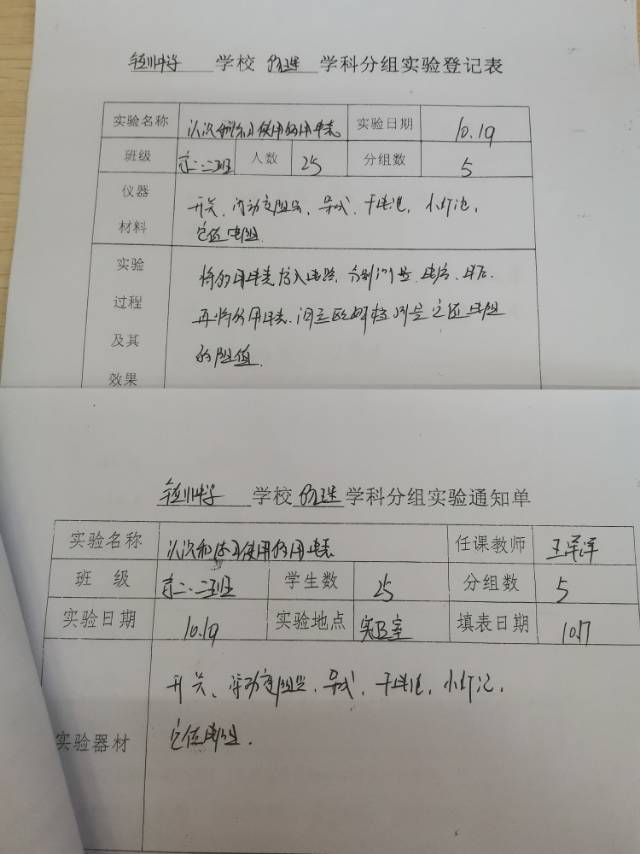 学校 物理 学科分组实验登记表
实验名称 认识和练习使用多用电表 实验日期 10.19
班级 高二.二班 人数 25 分组数 5
仪器
材料
开关、滑动变阻器、导线、干电池、小灯泡、
定值电阻
实验
过程
及其
效果
将多用电表接入电路,分别测量 电压、电流.
再将多用电表 调至欧姆档测量定值电阻
的阻值.
学校 物理 学科分组实验通知单
实验名称 认识和练习使用多用电表 任课教师 王洋洋
班 级 高二.二班 学生数 25 分组数 5
实验日期 10.19 实验地点 实验室 填表日期 10.17
实验器材
开关、滑动变阻器、导线、干电池、小灯泡、
定值电阻.